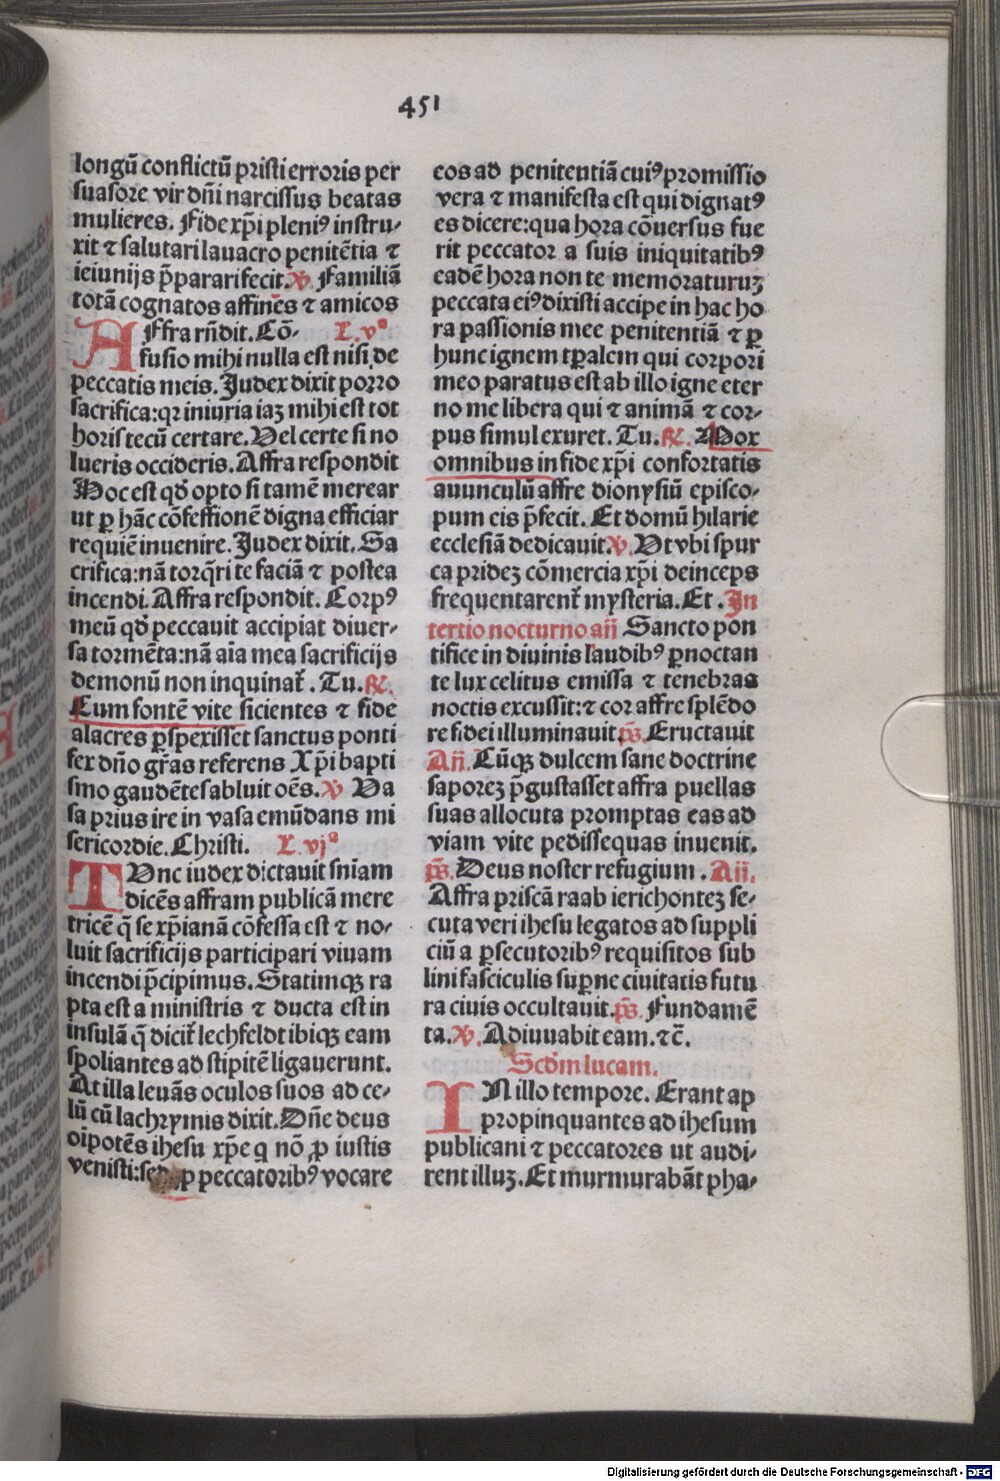 451
longū conflictū pristi erroris per
suasore vir dn̄i narcissus beatas
mulieres. Fide xp̄i pleniꝰ instru-
xit ⁊ salutari lauacro penitētia ⁊
ieiunijs p̄parari fecit. ℣. Familiā
totā cognatos affines ⁊ amicos
AFfra rn̄dit. Cō- L. vª
fusio mihi nulla est nisi de
peccatis meis. Judex dixit porro
sacrifica: qr iniuria iaꝫ mihi est tot
horis tecū certare. Vel certe si no
lueris occideris. Affra respondit
Hoc est qd̄ opto si tamē merear
ut ꝑ hāc cōfessionē digna efficiar
requiē inuenire. Judex dixit. Sa
crifica: nā torq̄ri te faciā ⁊ postea
incendi. Affra respondit. Corpꝰ
meū qd̄ peccauit accipiat diuer-
sa tormēta: nā aīa mea sacrificijs
demonū non inquinat̄. Tu. ℟.
Cum fontē vite sicientes ⁊ fide
alacres ꝑspexisset sanctus ponti
fex dn̄o gr̄as referens Xp̄i bapti
smo gaudētes abluit oēs. ℣ Va
sa prius ire in vasa emūdans mi
sericordie. Christi. L. vjª
TVnc iudex dictauit sn̄iam
dicēs affram publicā mere
tricē q̄ se xp̄ianā cōfessa est ⁊ no-
luit sacrificijs participari viuam
incendi p̄cipimus. Statimqꝫ ra
pta est a ministris ⁊ ducta est in
insulā q̄ dicit̄ lechfeldt ibiqꝫ eam
spoliantes ad stipitē ligauerunt.
At illa leuās oculos suos ad ce-
lū cū lachrymis dixit. Dn̄e deus
oīpotēs ihesu xp̄e q nō ꝓ iustis
venisti: sed ꝓ peccatoribꝰ vocare
eos ad penitentiā cuiꝰ promissio
vera ⁊ manifesta est qui dignatꝰ
es dicere: qua hora cōuersus fue
rit peccator a suis iniquitatibꝰ
eadē hora non te memoraturuꝫ
peccata eiꝰ dixisti accipe in hac ho
ra passionis mee penitentiā ⁊ ꝑ
hunc ignem tp̄alem qui corpori
meo paratus est ab illo igne eter
no me libera qui ⁊ animā ⁊ cor-
pus simul exuret. Tu. ℟. Mox
omnibus in fide xp̄i confortatis
auunculū affre dionysiū episco-
pum eis p̄fecit. Et domū hilarie
ecclesiā dedicauit ℣. Vt vbi spur
ca prideꝫ cōmercia xp̄i deinceps
frequentarent̄ mysteria. Et. In
tertio nocturno an̄ Sancto pon
tifice in diuinis laudibꝰ ꝑnoctan
te lux celitus emissa ⁊ tenebras
noctis excussit: ⁊ cor affre splēdo
re fidei illuminauit. ps̄. Eructauit
An̄. Cūqꝫ dulcem sane doctrine
saporeꝫ p̄gustasset affra puellas
suas allocuta promptas eas ad
viam vite pedissequas inuenit.
ps̄. Deus noster refugium. An̄.
Affra priscā raab ierichonteꝫ se-
cuta veri ihesu legatos ad suppli
ciū a ꝑsecutoribꝰ requisitos sub
lini fasciculis suꝑne ciuitatis futu
ra ciuis occultauit. ps̄. Fundamē
ta. ℣. Adiuuabit eam. ⁊c̄.
Scd̄m lucam.
IN illo tempore. Erant ap
propinquantes ad ihesum
publicani ⁊ peccatores ut audi-
rent illuꝫ. Et murmurabāt pha-
Digitalisierung gefördert durch die Deutsche Forschungsgemeinschaft - DFG